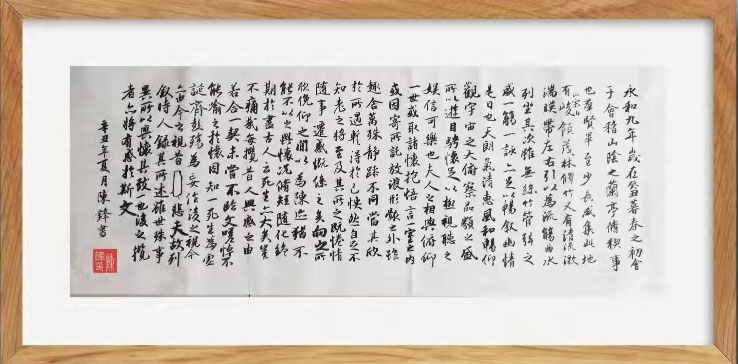 永和九年歲在癸丑暮春之初會
于會稽山陰之蘭亭脩稧事
也羣賢畢至少長咸集此地
有崇山峻領茂林脩竹又有清流激
湍暎帶左右引以為流觴曲水
列坐其次雖無絲竹管弦之
盛一觴一詠亦足以暢敘幽情
是日也天朗氣清惠風和暢仰
觀宇宙之大俯察品類之盛
所以遊目騁懷足以極視聽之
娛信可樂也夫人之相與俯仰
一世或取諸懷抱悟言一室之內
或因寄所託放浪形骸之外雖
趣舍萬殊靜躁不同當其欣
於所遇蹔得於己快然自足不
知老之將至及其所之既惓情
隨事遷感慨係之矣向之所
欣俛仰之閒以為陳迹猶不
能不以之興懷況脩短隨化終
期於盡古人云死生亦大矣豈
不痛哉每攬昔人興感之由
若合一契未嘗不臨文嗟悼不
能喻之於懷固知一死生為虛
誕齊彭殤為妄作後之視今
亦由今之視昔悲夫故列
敘時人錄其所述雖世殊事
異所以興懷其致一也後之攬
者亦將有感於斯文
辛丑年夏月陳鋒書